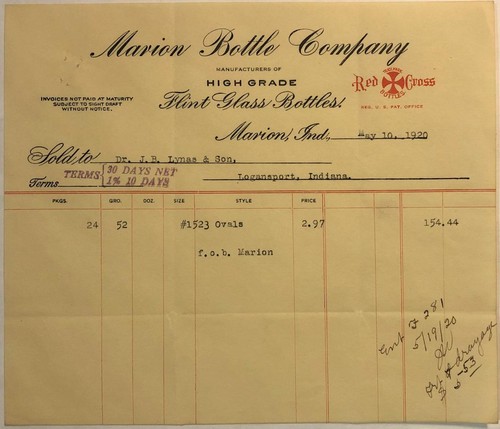 Marion Bottle Company
MANUFACTURERS OF
HIGH GRADE
Flint Glass Bottles.
INVOICES NOT PAID AT MATURITY
SUBJECT TO SIGHT DRAFT
WITHOUT NOTICE.
Red Cross
BOTTLES
REG. U. S. PAT. OFFICE
Marion, Ind., May 10, 1920
Sold to Dr. J. B. Lynas & Son,
Terms TERMS: 30 DAYS NET Logansport, Indiana.
1% 10 DAYS
PKGS. GRO. DOZ. SIZE STYLE PRICE
24 52 #1523 Ovals 2.97 154.44
f.o.b. Marion
Ent F 281
5/19/20
Frt & drayage
$ 5 53